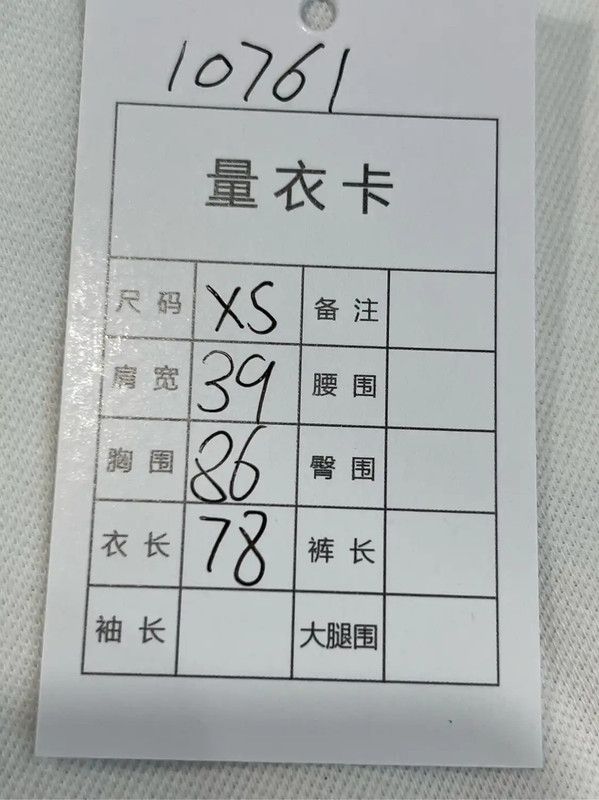 10761
量衣卡
尺码 XS 备注
肩宽 39 腰围
胸围 86 臀围
衣长 78 裤长
袖长 大腿围